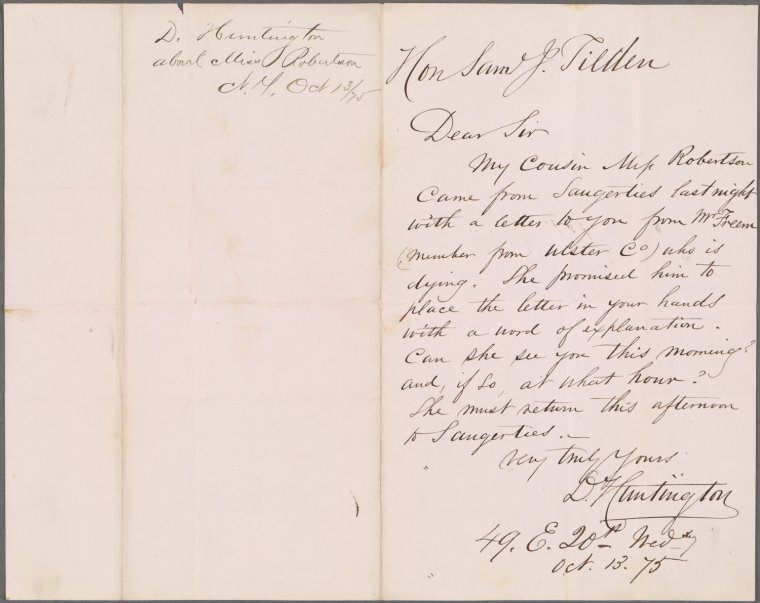 D. Huntington
about Miss Robertson
N.Y. Oct 13/75
Hon Saml J. Tilden
Dear Sir
My Cousin Miss Robertson
came from Saugerties last night
with a letter to you from Mr Freem
(member from Ulster Co) who is
dying. She promised him to
place the letter in your hands
with a word of explanation.
Can she see you this morning?
and, if so, at what hour?
She must return this afternoon
to Saugerties. —
very truly Yours
D. Huntington
49. E. 20th Wedy
Oct. 13. 75